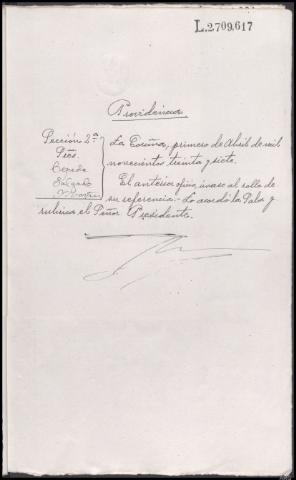 L.2709,617
Providencia
Sección 2ª
Sres.
Cereda
Salgado
La Coruña, primero de Abril de mil
novecientos treinta y siete.
El anterior oficio, únase al rollo de
su referencia.- Lo acordó la Sala y
rubrica el Señor Presidente.